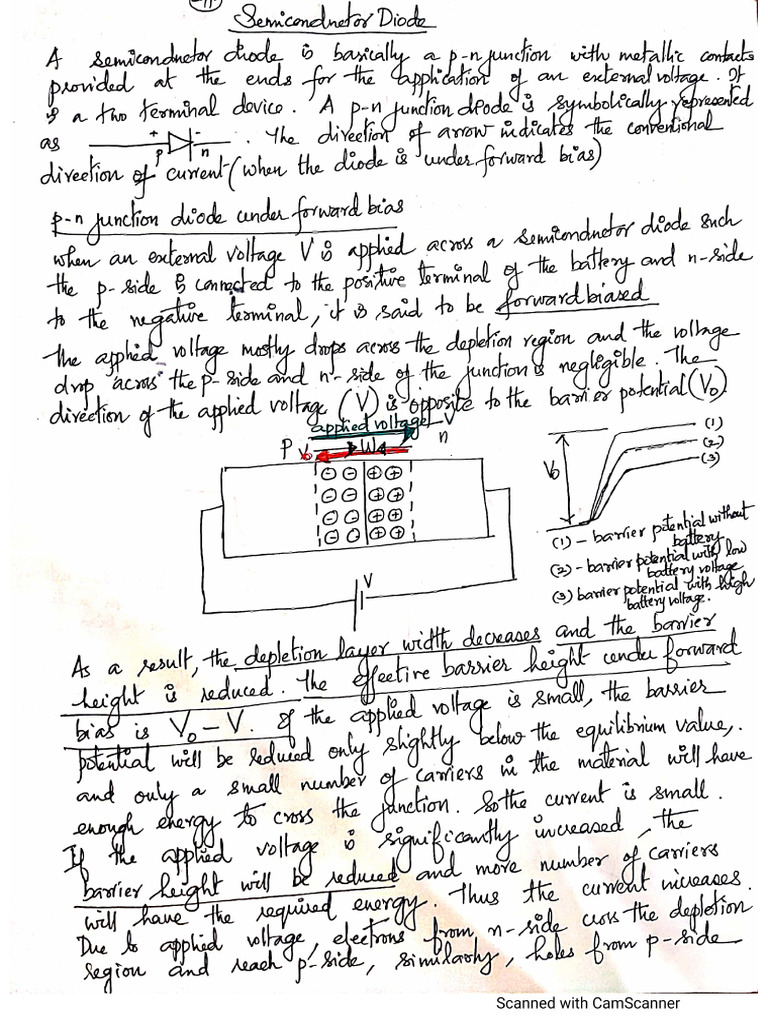 -11-
Semiconductor Diode
A semiconductor diode is basically a p-n junction with metallic contacts
provided at the ends for the application of an external voltage. It
is a two terminal device. A p-n junction diode is symbolically represented
as + - p n . The direction of arrow indicates the conventional
direction of current (when the diode is under forward bias)
p-n junction diode under forward bias
When an external voltage V is applied across a semiconductor diode such
the p-side is connected to the positive terminal of the battery and n-side
to the negative terminal, it is said to be forward biased
The applied voltage mostly drops across the depletion region and the voltage
drop across the p-side and n-side of the junction is negligible. The
direction of the applied voltage (V) is opposite to the barrier potential (V0)
applied voltage - V
P V0 W n
V0
(1)
(2)
(3)
(1) - barrier potential without
battery
(2) - barrier potential with low
battery voltage
(3) barrier potential with high
battery voltage.
V
As a result, the depletion layer width decreases and the barrier
height is reduced. The effective barrier height under forward
bias is V0 - V. If the applied voltage is small, the barrier
potential will be reduced only slightly below the equilibrium value,
and only a small number of carriers in the material will have
enough energy to cross the junction. So the current is small.
If the applied voltage is significantly increased, the
barrier height will be reduced and more number of carriers
will have the required energy. Thus the current increases.
Due to applied voltage, electrons from n-side cross the depletion
region and reach p-side, similarly, holes from p-side
Scanned with CamScanner